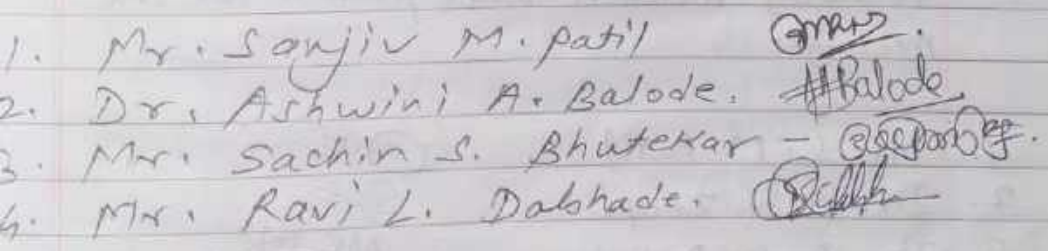 1. Mr. Sanjiv M. Patil
2. Dr. Ashwini A. Balode. AABalode
3. Mr. Sachin S. Bhutekar -
4. Mr. Ravi L. Dabhade.